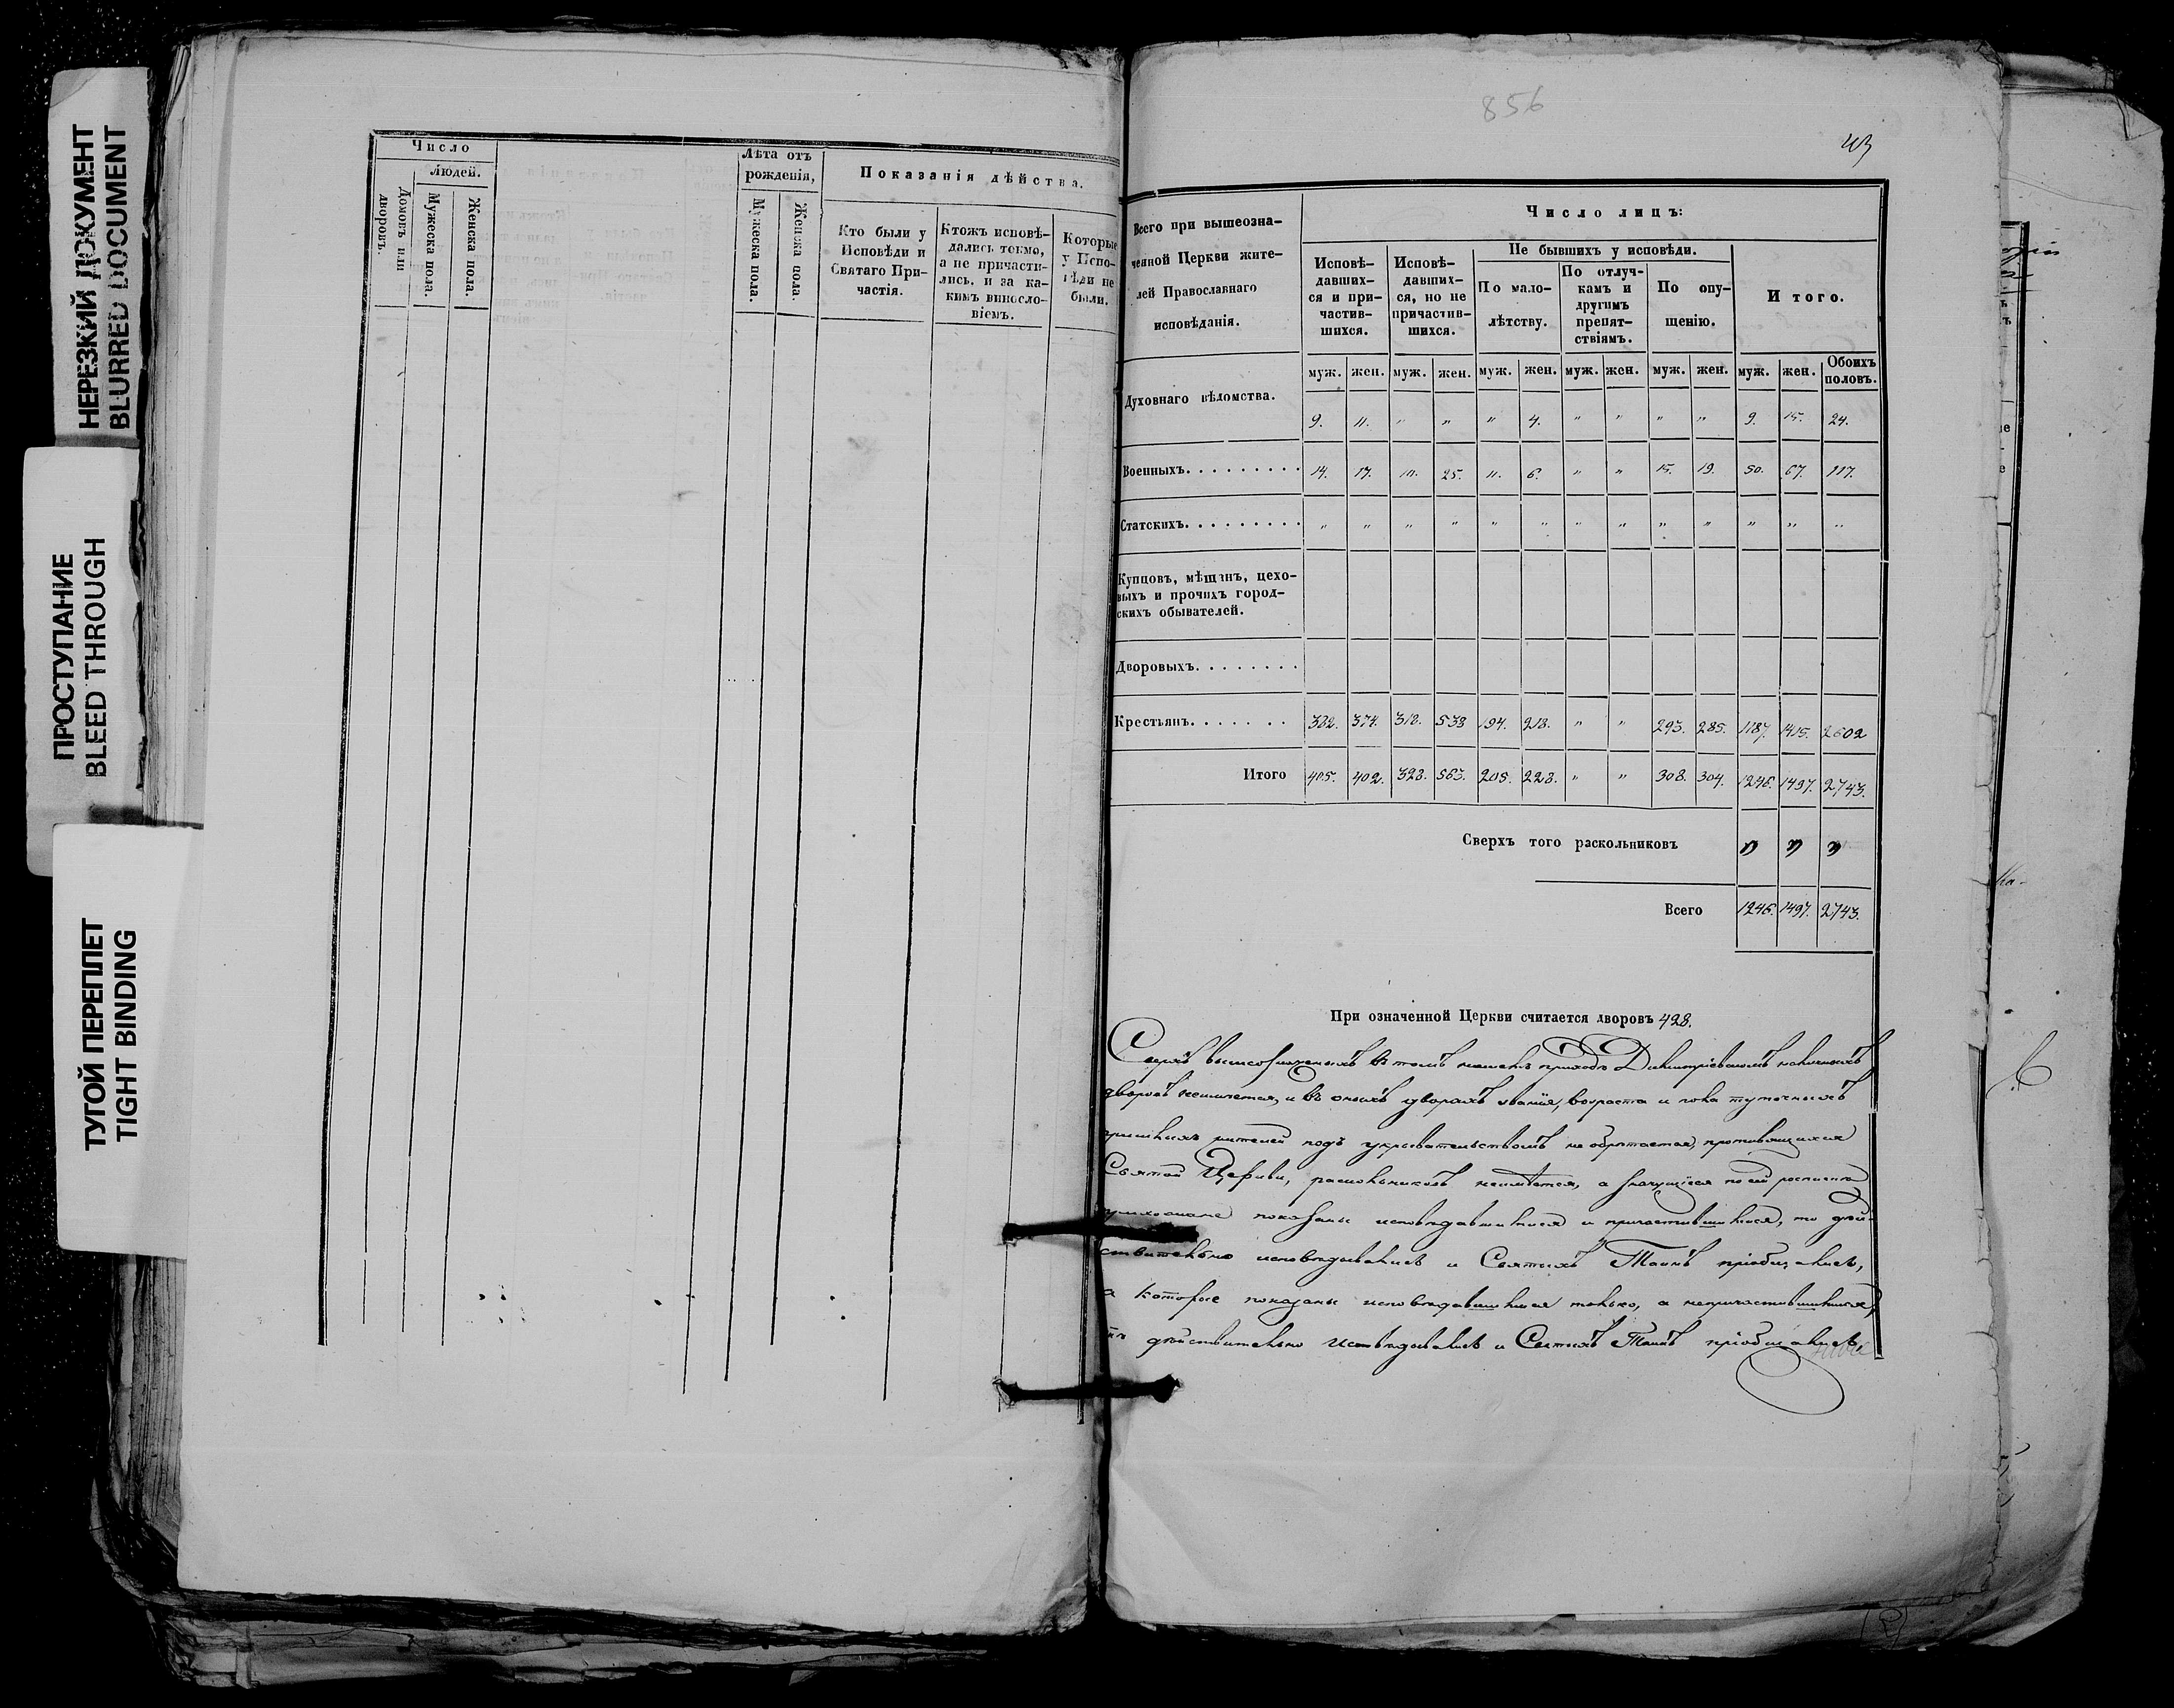 НЕРЕЗКИЙ ДОКУМЕНТ
BLURRED DOCUMENT
ПРОСТУПАНИЕ
BLEED THROUGH
ТУГОЙ ПЕРЕПЛЕТ
TIGHT BINDING
Число
людей.
Домовъ или дворовъ.
Мужеска пола.
Женска пола.
Лѣта отъ
рожденія,
Мужеска пола.
Женска пола.
Показанія дѣйства.
Кто были у
Исповѣди и
Святаго При-
частія.
Ктожъ исповѣ-
дались токмо,
а не причасти-
лись, и за ка-
кимъ винослo-
віемъ.
Которые
у Испо-
вѣди не
были.
856
43
Всего при вышеозна-
ченной Церкви жите-
лей Православнаго
исповѣданія.
Число лицъ:
Исповѣ-
давших-
ся и при-
частив-
шихся.
Исповѣ-
давших-
ся, но не
причастив-
шихся.
Не бывшихъ у исповѣди.
По мало-
лѣтству.
По отлуч-
камъ и
другимъ
препят-
ствіямъ.
По опу-
щенію.
Итого.
муж. жен. муж. жен. муж. жен. муж. жен. муж. жен. муж. жен. Обоихъ половъ.
Духовнаго вѣдомства. 9. 11. " " " 4. " " " " 9. 15. 24.
Военныхъ. 14. 17. 10. 25. 11. 6. " " 15. 19. 50. 67. 117.
Статскихъ. " " " " " " " " " " " " "
Купцовъ, мѣщанъ, цехо-
выхъ и прочихъ город-
скихъ обывателей.
Дворовыхъ.
Крестьянъ. 382. 374. 318. 538 194. 218. " " 293. 285. 1187. 1415. 2602
Итого 405. 402. 328. 563. 205. 228. " " 308. 304. 1246. 1497. 2743.
Сверхъ того раскольниковъ " " "
Всего 1246. 1497. 2743.
При означенной Церкви считается дворовъ 428.
Сверхъ вышеозначенныхъ въ томъ нашемъ приходѣ Димитріевскомъ
дворовъ неимѣется, и въ оныхъ дворахъ званія, возраста и пола
жителей подъ укрывательствомъ не обрѣтается, противящихся
Святой Церкви, раскольниковъ неимѣется, а значущіеся по сей росписи
прихожане показаны исповѣдавшимися и причастившимися, то дѣй-
ствительно исповѣдывались и Святыхъ Таинъ пріобщались,
а которые показаны исповѣдавшимися только, а непричастившимися,
тѣ дѣйствительно исповѣдывались и Святыхъ Таинъ пріобщались,